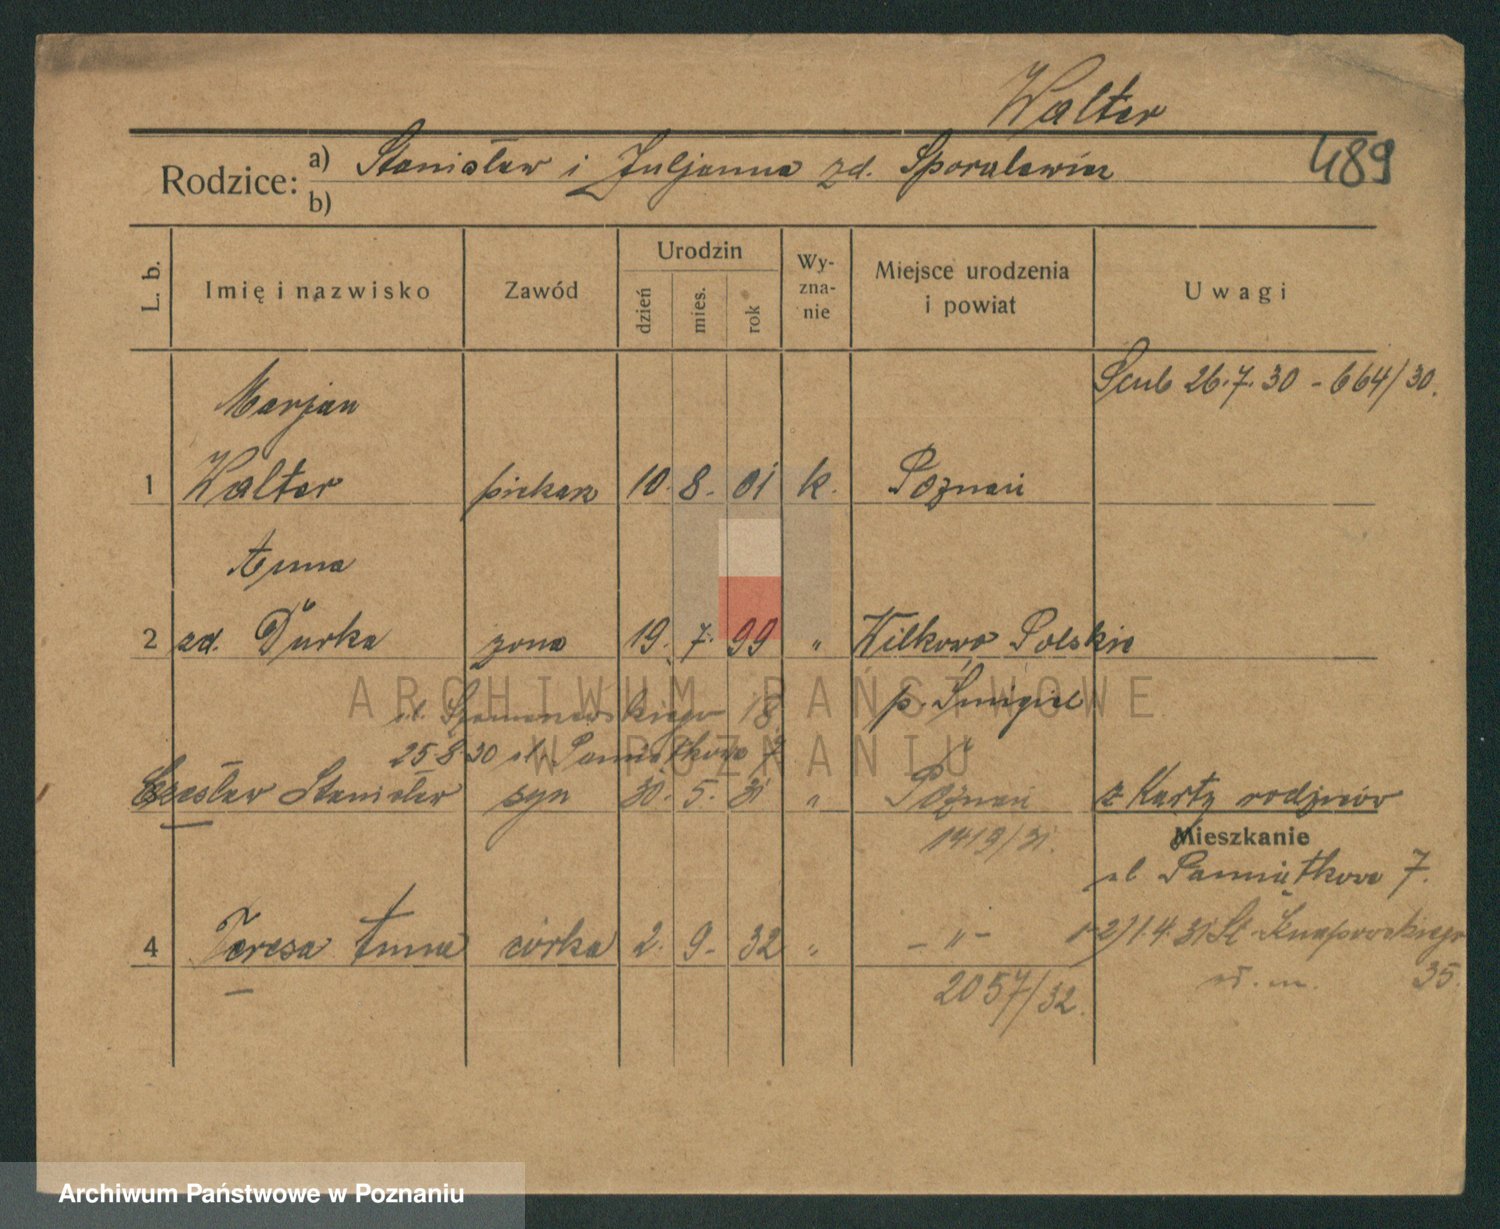 Walter
Rodzice: a) Stanisław i Juljanna zd. Sporalewicz
489
b)
L. b.
Imię i nazwisko
Zawód
Urodzin
dzień
mies.
rok
Wy-
zna-
nie
Miejsce urodzenia
i powiat
Uwagi
Ślub 26.7.30 - 664/30.
Marjan
1 Walter piekarz 10. 8. 01 k. Poznań
Anna
2 zd. Durka żona 19. 7. 99 " Wilkowo Polskie
p. Śmigiel
ul. 18
25 8 30 ul. Pamiątkowa 7
Czesław Stanisław syn 30. 5. 31 " Poznań z Karty rodziców
1419/31.
Mieszkanie
ul. Pamiątkowa 7.
4 Teresa Anna córka 2. 9. 32 " - " -
1.4.31 St. Knaporowskiego
35.
2057/32.
ARCHIWUM PAŃSTWOWE
W POZNANIU
Archiwum Państwowe w Poznaniu